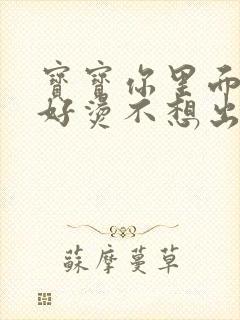 寶寶你里面
好燙不想出
蘇摩蔓草